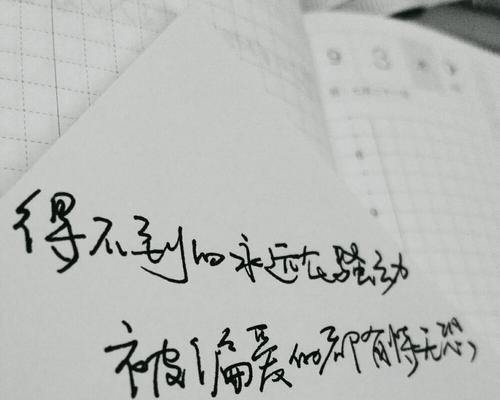 得不到的永远在骚动
被偏爱的却有恃无恐,